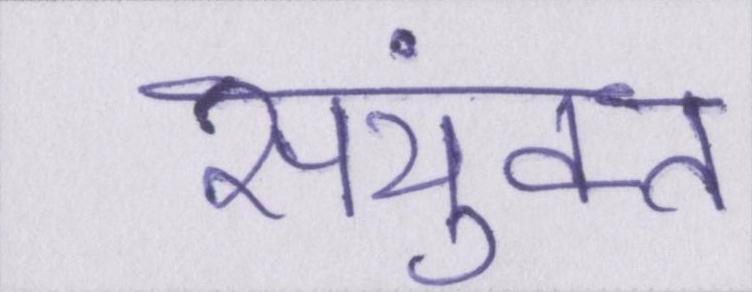 सयुंक्त